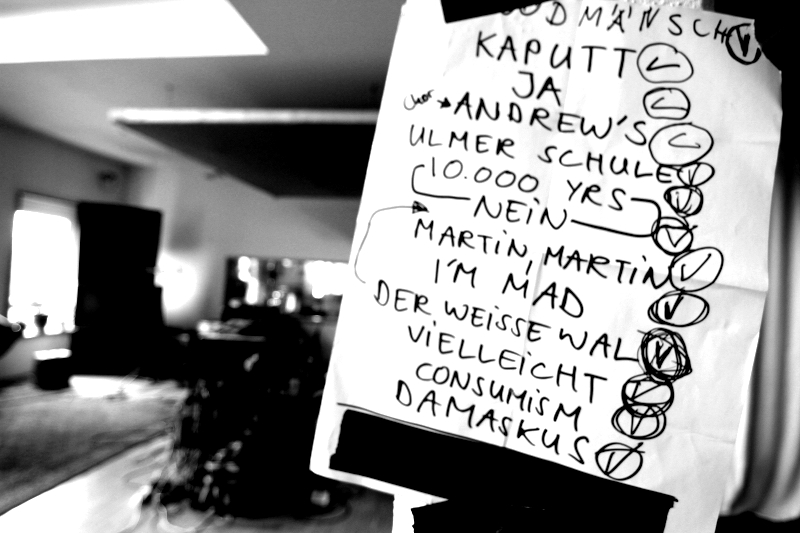 ODMÄNSCH
KAPUTT
JA
ANDREW'S
ULMER SCHULE
10.000 YRS
NEIN
MARTIN, MARTIN
I'M MAD
DER WEISSE WAL
VIELLEICHT
CONSUMISM
DAMASKUS